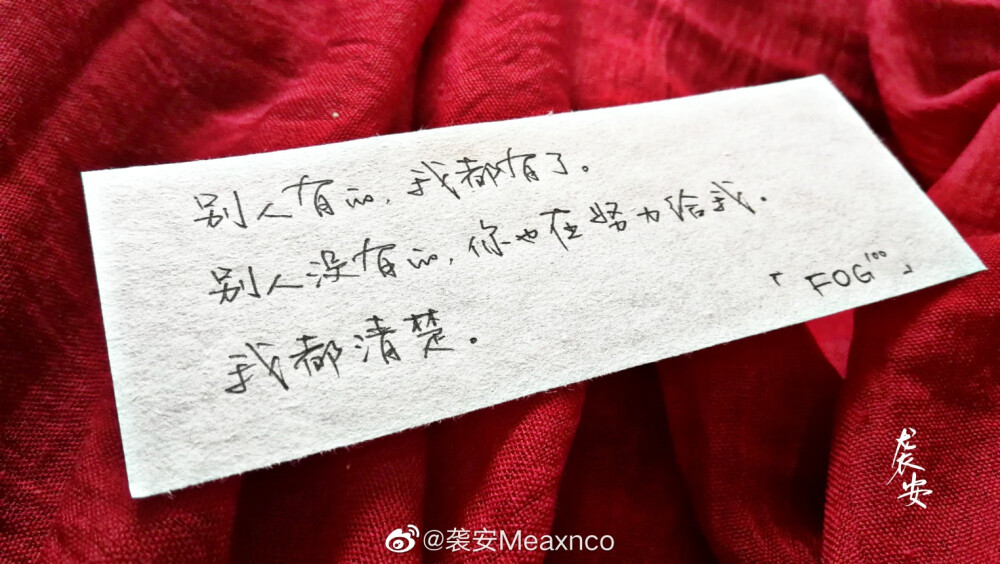 别人有的,我都有了。
别人没有的,你也在努力给我.
我都清楚。
「FOG¹⁰⁰」
袭安
@袭安Meaxnco